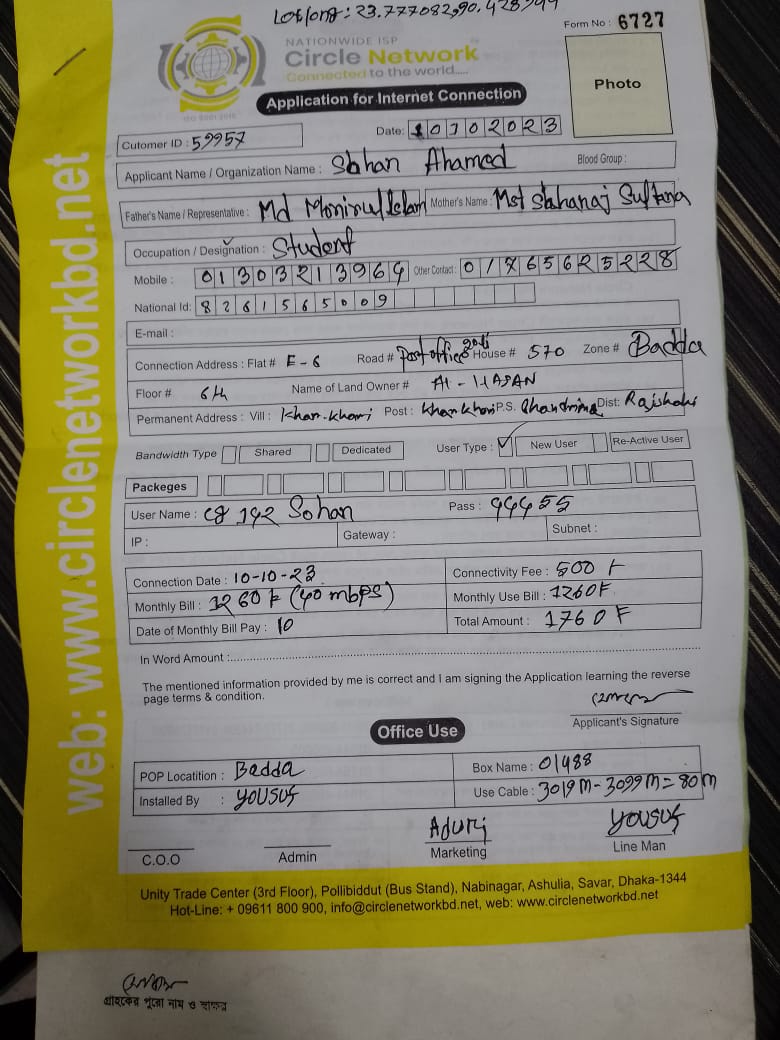 Lat/long: 23.777082,90.428
Form No : 6727
NATIONWIDE ISP
Circle Network
Connected to the world.....
ISO 9001:2015
Application for Internet Connection
Photo
Cutomer ID : 59957
Date: 10102023
Applicant Name / Organization Name : Sohan Ahamed Blood Group :
Father's Name / Representative : Md Monirul Islam Mother's Name : Mst Shahanaj Sultana
Occupation / Designation : Student
Mobile : 01303213964 Other Contact : 01765625228
National Id: 8261565009
E-mail :
Connection Address : Flat # E-6 Road # Post office House # 570 Zone # Badda
Floor # 6th Name of Land Owner # Al-HASAN
Permanent Address : Vill : Khan-khari Post : Khankhari P.S. Chandrima Dist: Rajshahi
Bandwidth Type Shared Dedicated User Type : ✓ New User Re-Active User
Packeges
User Name : Sohan Pass : 99955
IP : Gateway : Subnet :
Connection Date : 10-10-23 Connectivity Fee : 500
Monthly Bill : 1260 (40 mbps) Monthly Use Bill : 1260
Date of Monthly Bill Pay : 10 Total Amount : 1760
In Word Amount :
The mentioned information provided by me is correct and I am signing the Application learning the reverse
page terms & condition.
Applicant's Signature
Office Use
POP Locatition : Badda Box Name : 01488
Installed By : Yousuf Use Cable : 3019 M - 3099 M = 80 M
Aduri Yousuf
C.O.O Admin Marketing Line Man
Unity Trade Center (3rd Floor), Pollibiddut (Bus Stand), Nabinagar, Ashulia, Savar, Dhaka-1344
Hot-Line: + 09611 800 900, info@circlenetworkbd.net, web: www.circlenetworkbd.net
web: www.circlenetworkbd.net
গ্রাহকের পুরো নাম ও স্বাক্ষর